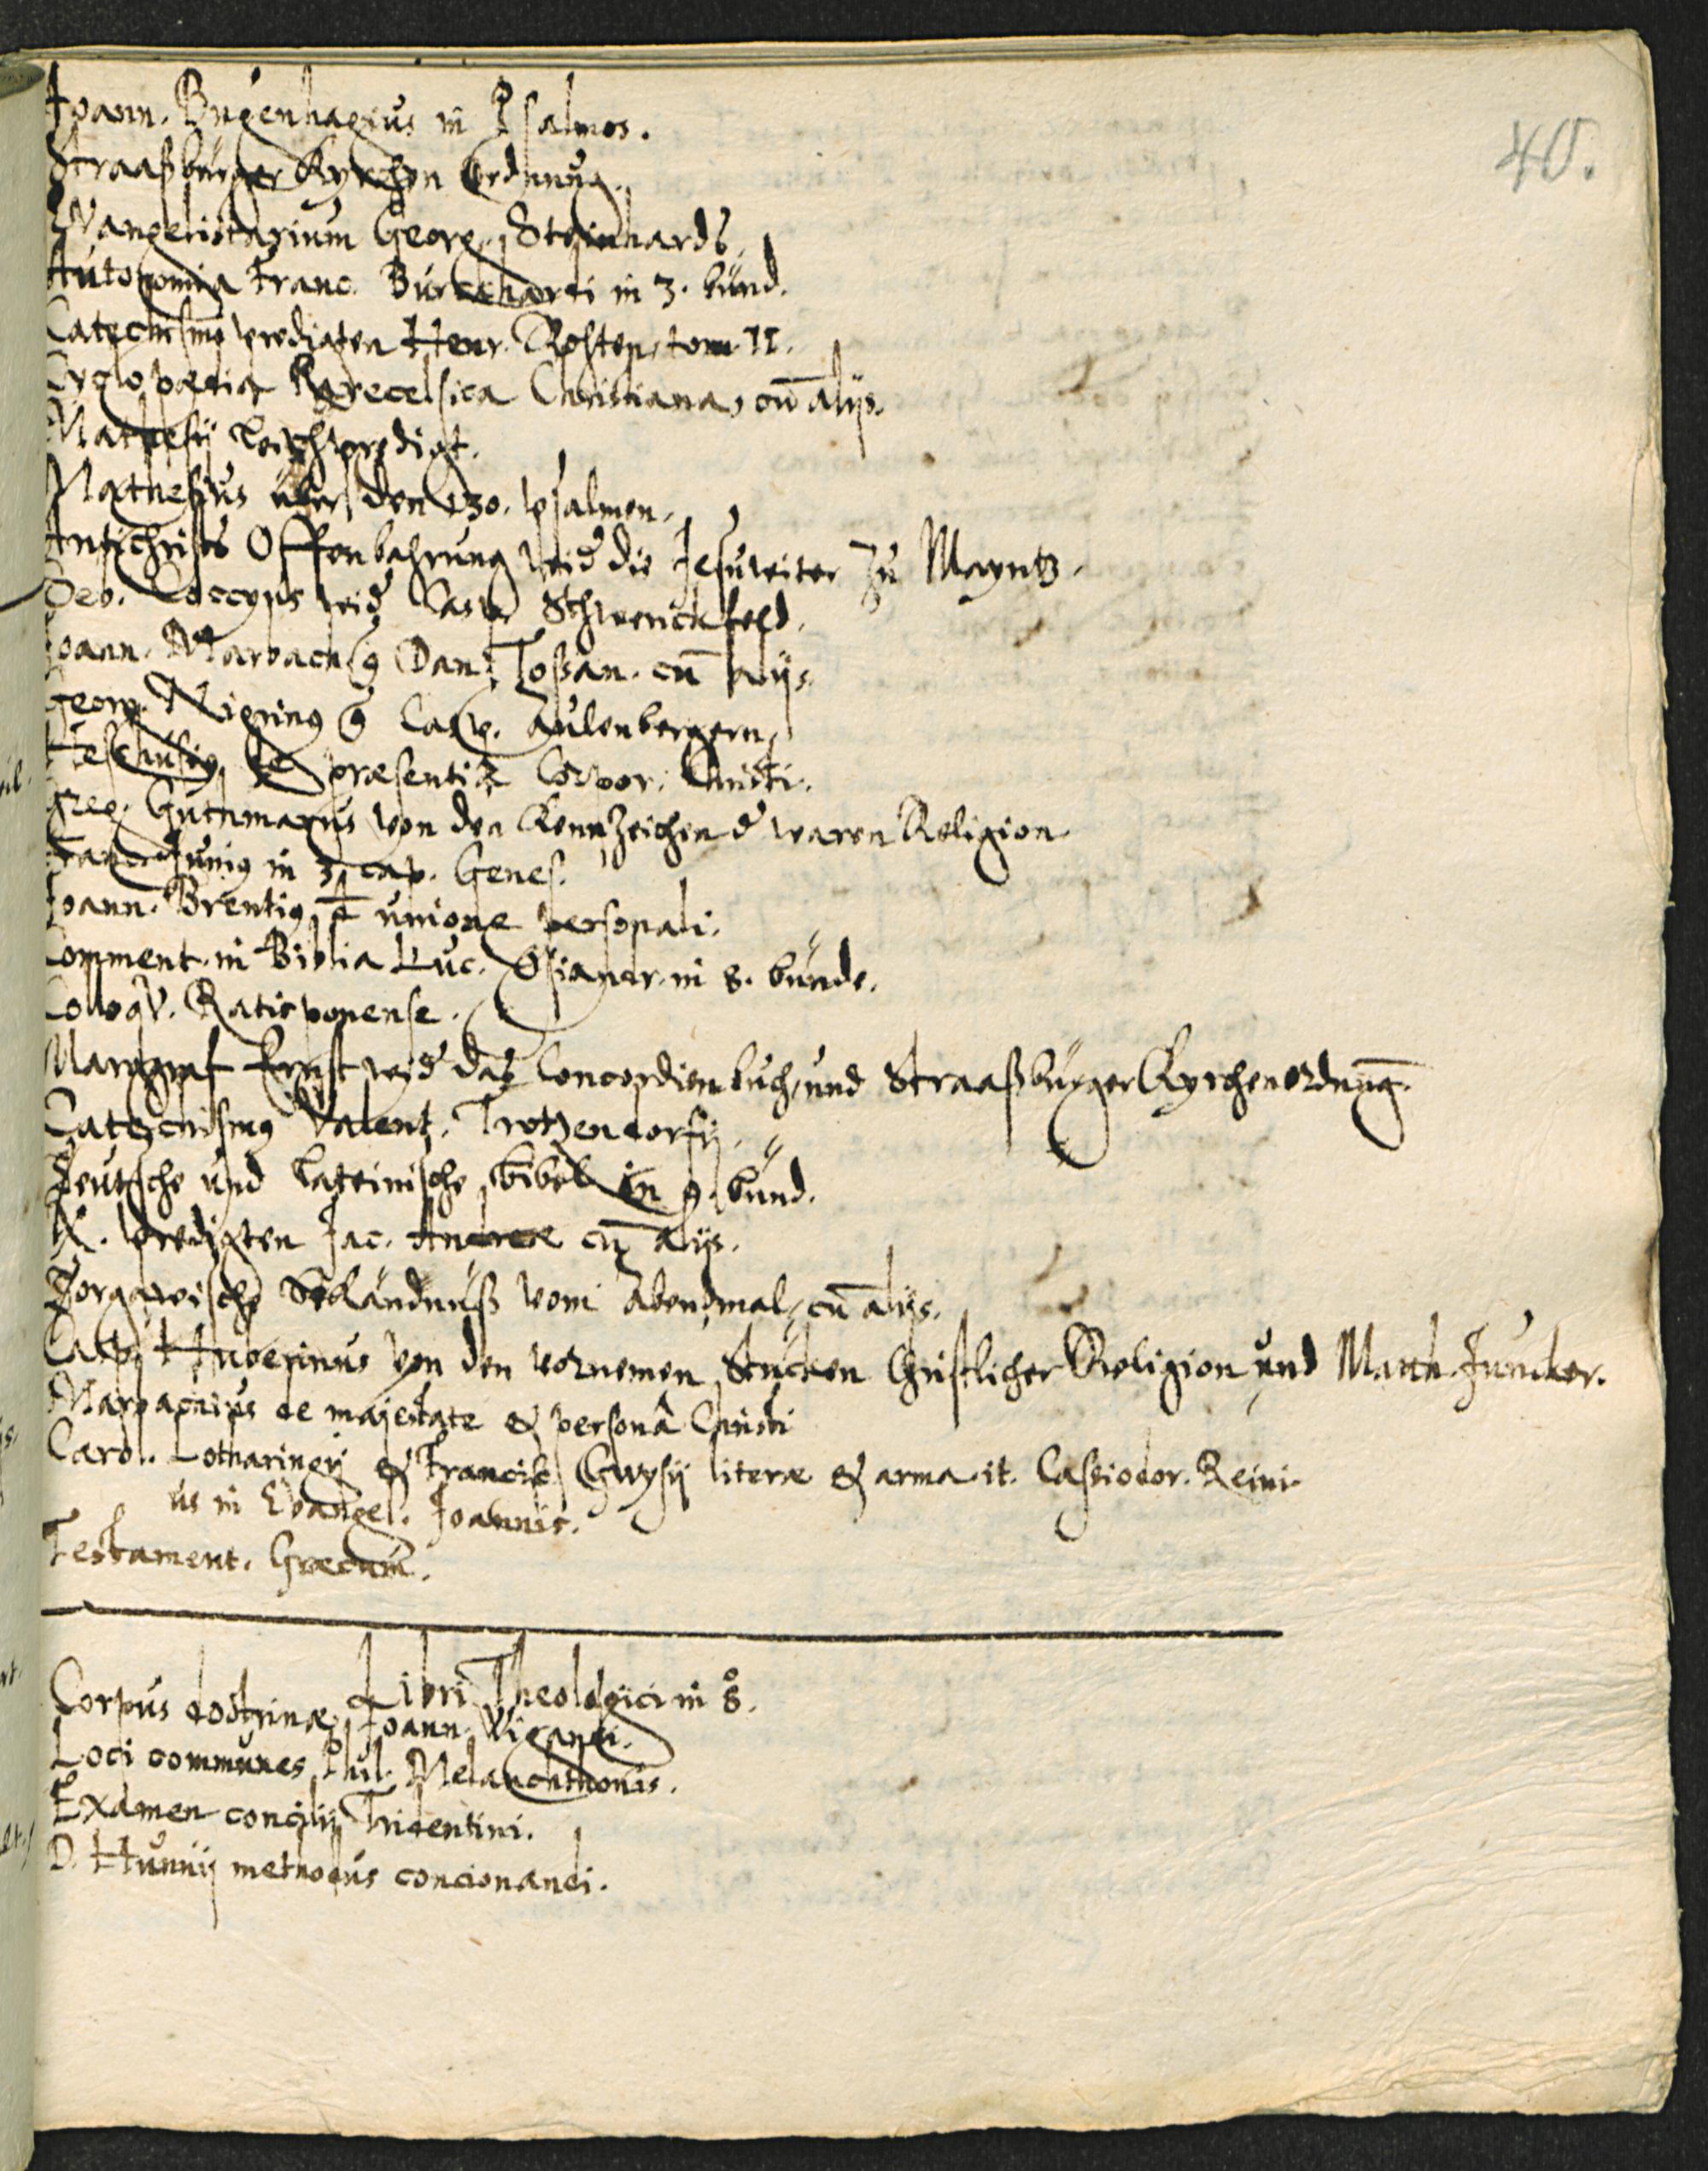 40.
Joann. Bugenhagius in Psalmos.
Straaßburger Kyrchen Ordnung.
Evangelistarium Georg. Steinhards,
Autonomia Franc. Burckharti in 3. bünd.
Catechismus predigten Henr. Rosten, tom. II.
Cyclopædia Paracelsica Christiana, cũ alijs.
Mathesij Leichpredigt.
Mathesius über den 130. psalmen,
Antichrists Offenbahrung wid die Jesuweiter zu Mayntz.
Geo. Coccyus wid Casp. Schwenckfeld,
Joann. Marbach c Dan. Toßan. cũ alijs.
Georg. Nigrinus c Casp. Aulenbergern,
Heshusius de præsentia Corpor. Christi.
Æg. Guthmarus von den Kennzeichen d waren Religion
Franc. Junius in 3. cap. Genes.
Joann. Brentius de unione personali.
Comment. in Biblia Luc. Osiandr. in 8. bünde.
Colloqv. Ratisponense.
Marggraf Ernst wid das Concordienbuch, und Straaßbürger Kyrchenordnũg.
Catechismus Valent. Trotzendorfij,
Deutsche und Lateinische bibel in 9. bünd.
X. predigten Jac. Andreæ cũ alijs.
Torgawische Bekändnüß vom Abendmal, cũ alijs.
Casp. Huberinus von den vornemen Stucken Christlicher Religion und Matth. Juncker.
Marbachius de majestate & personâ Christi
Carol. Lotharingij & Francisc. Gwysij literæ & arma. it. Cassiodor. Reini-
us in Evangel. Joannis.
Testament. Græcum.
Libri Theologici in 8.
Corpus doctrinæ Joann. Wigandi.
Loci communes Phil. Melanchthonis.
Examen concilij Tridentini.
D. Hunnij methodus concionandi.